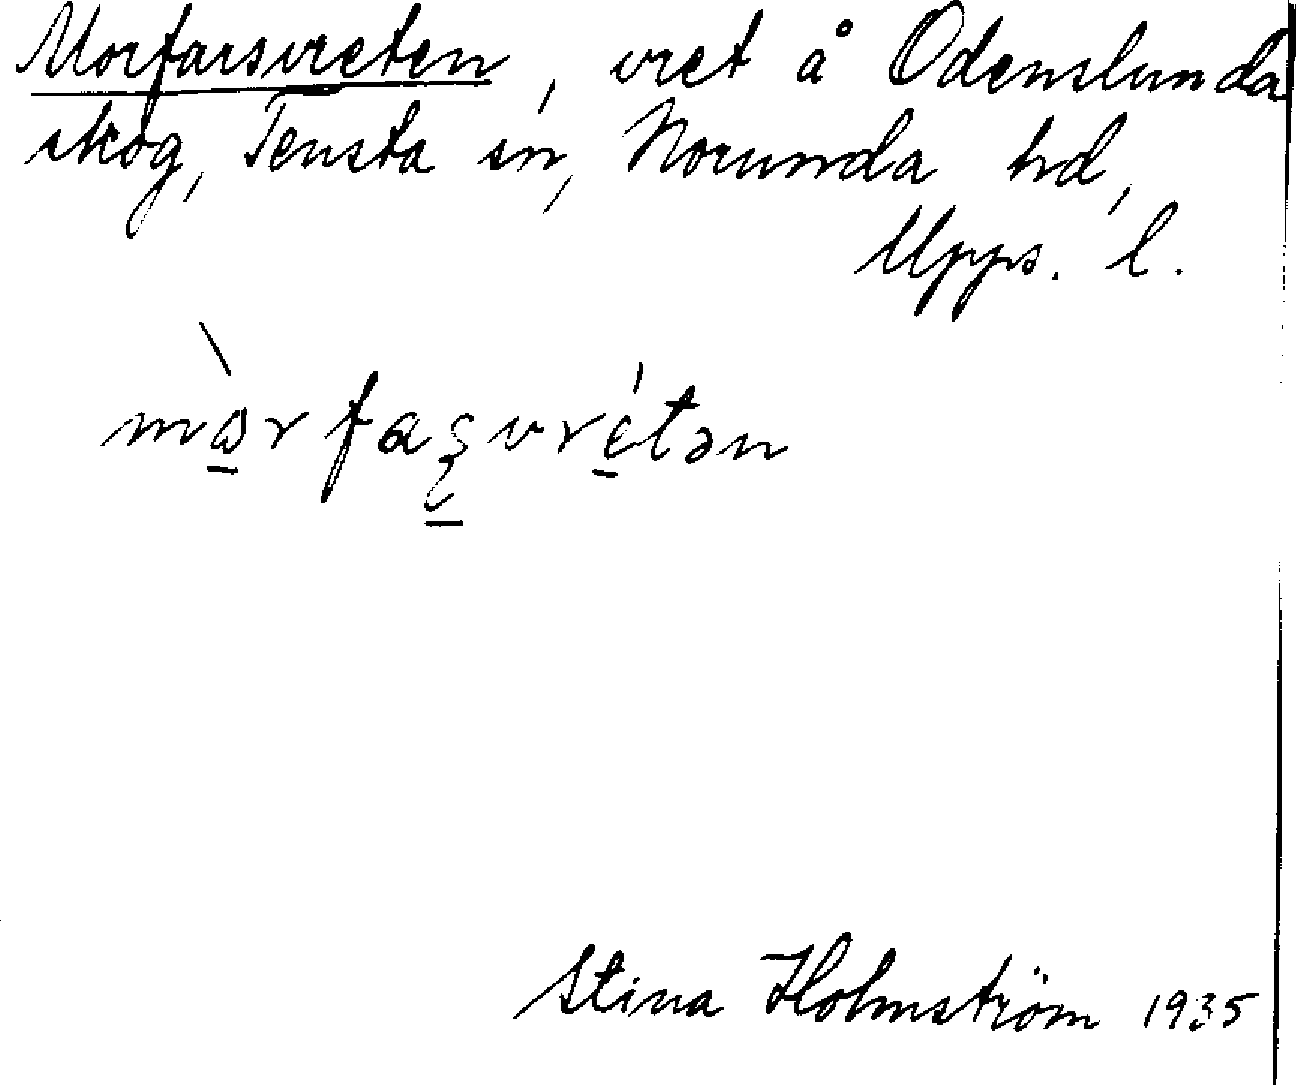 Morfarsvreten, vret å Odenslunda
skog, Tensta sn, Norunda hd,
Upps. l.
mòrfaşvrétən
Stina Holmström 1935